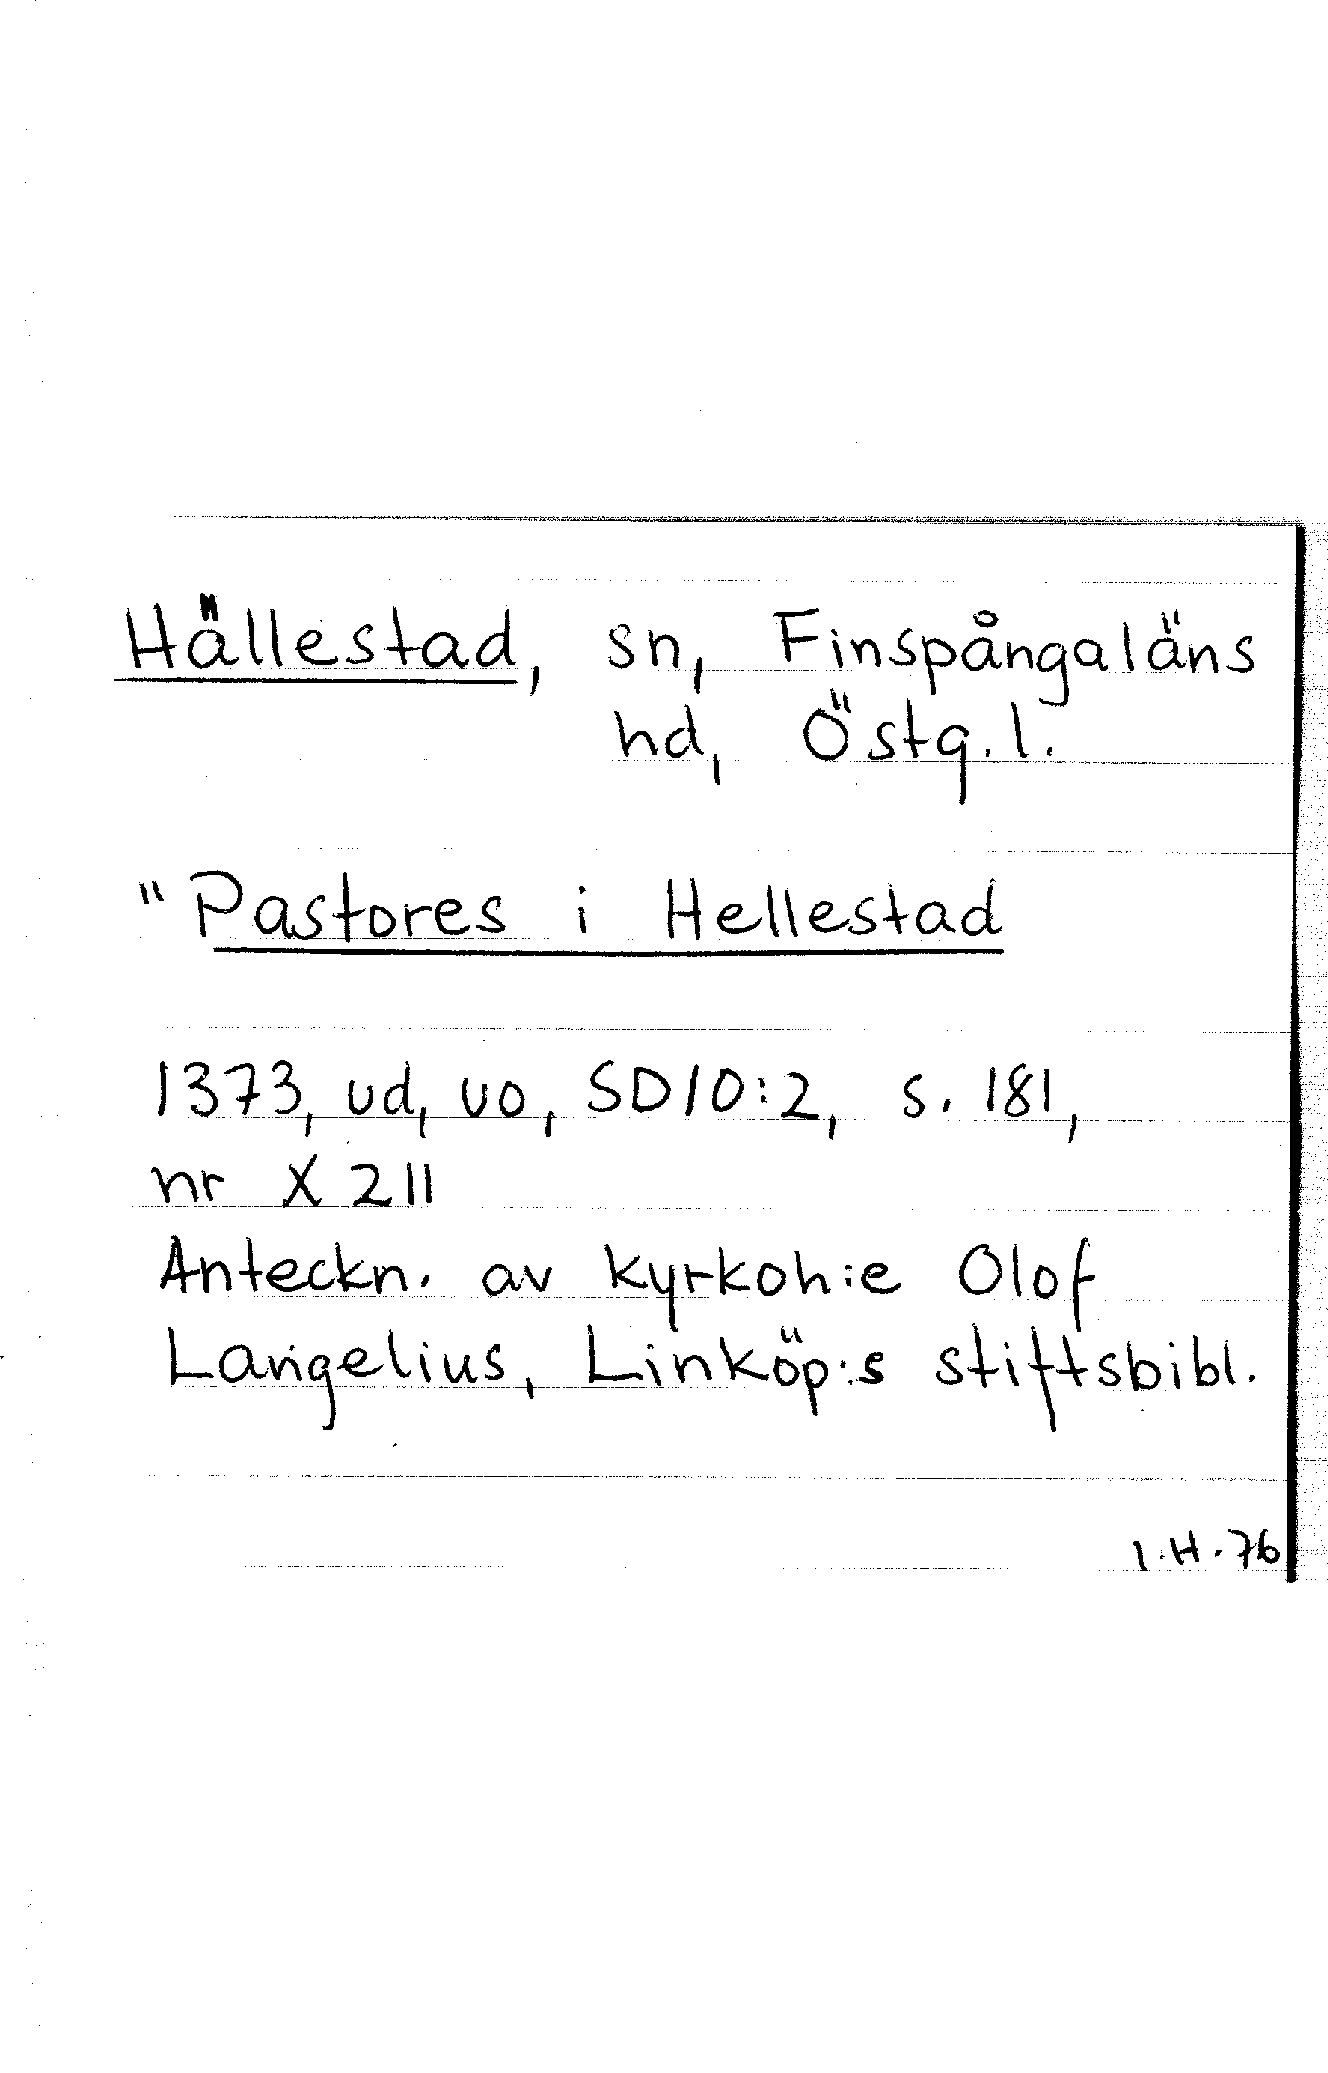 Hällestad, sn, Finspångaläns
hd, Östg. l.
"Pastores i Hellestad
1373, ud, uo, SD10:2, s. 181,
nr X 211
Anteckn. av kyrkoh:e Olof
Langelius, Linköp:s stiftsbibl.
I.H. 76